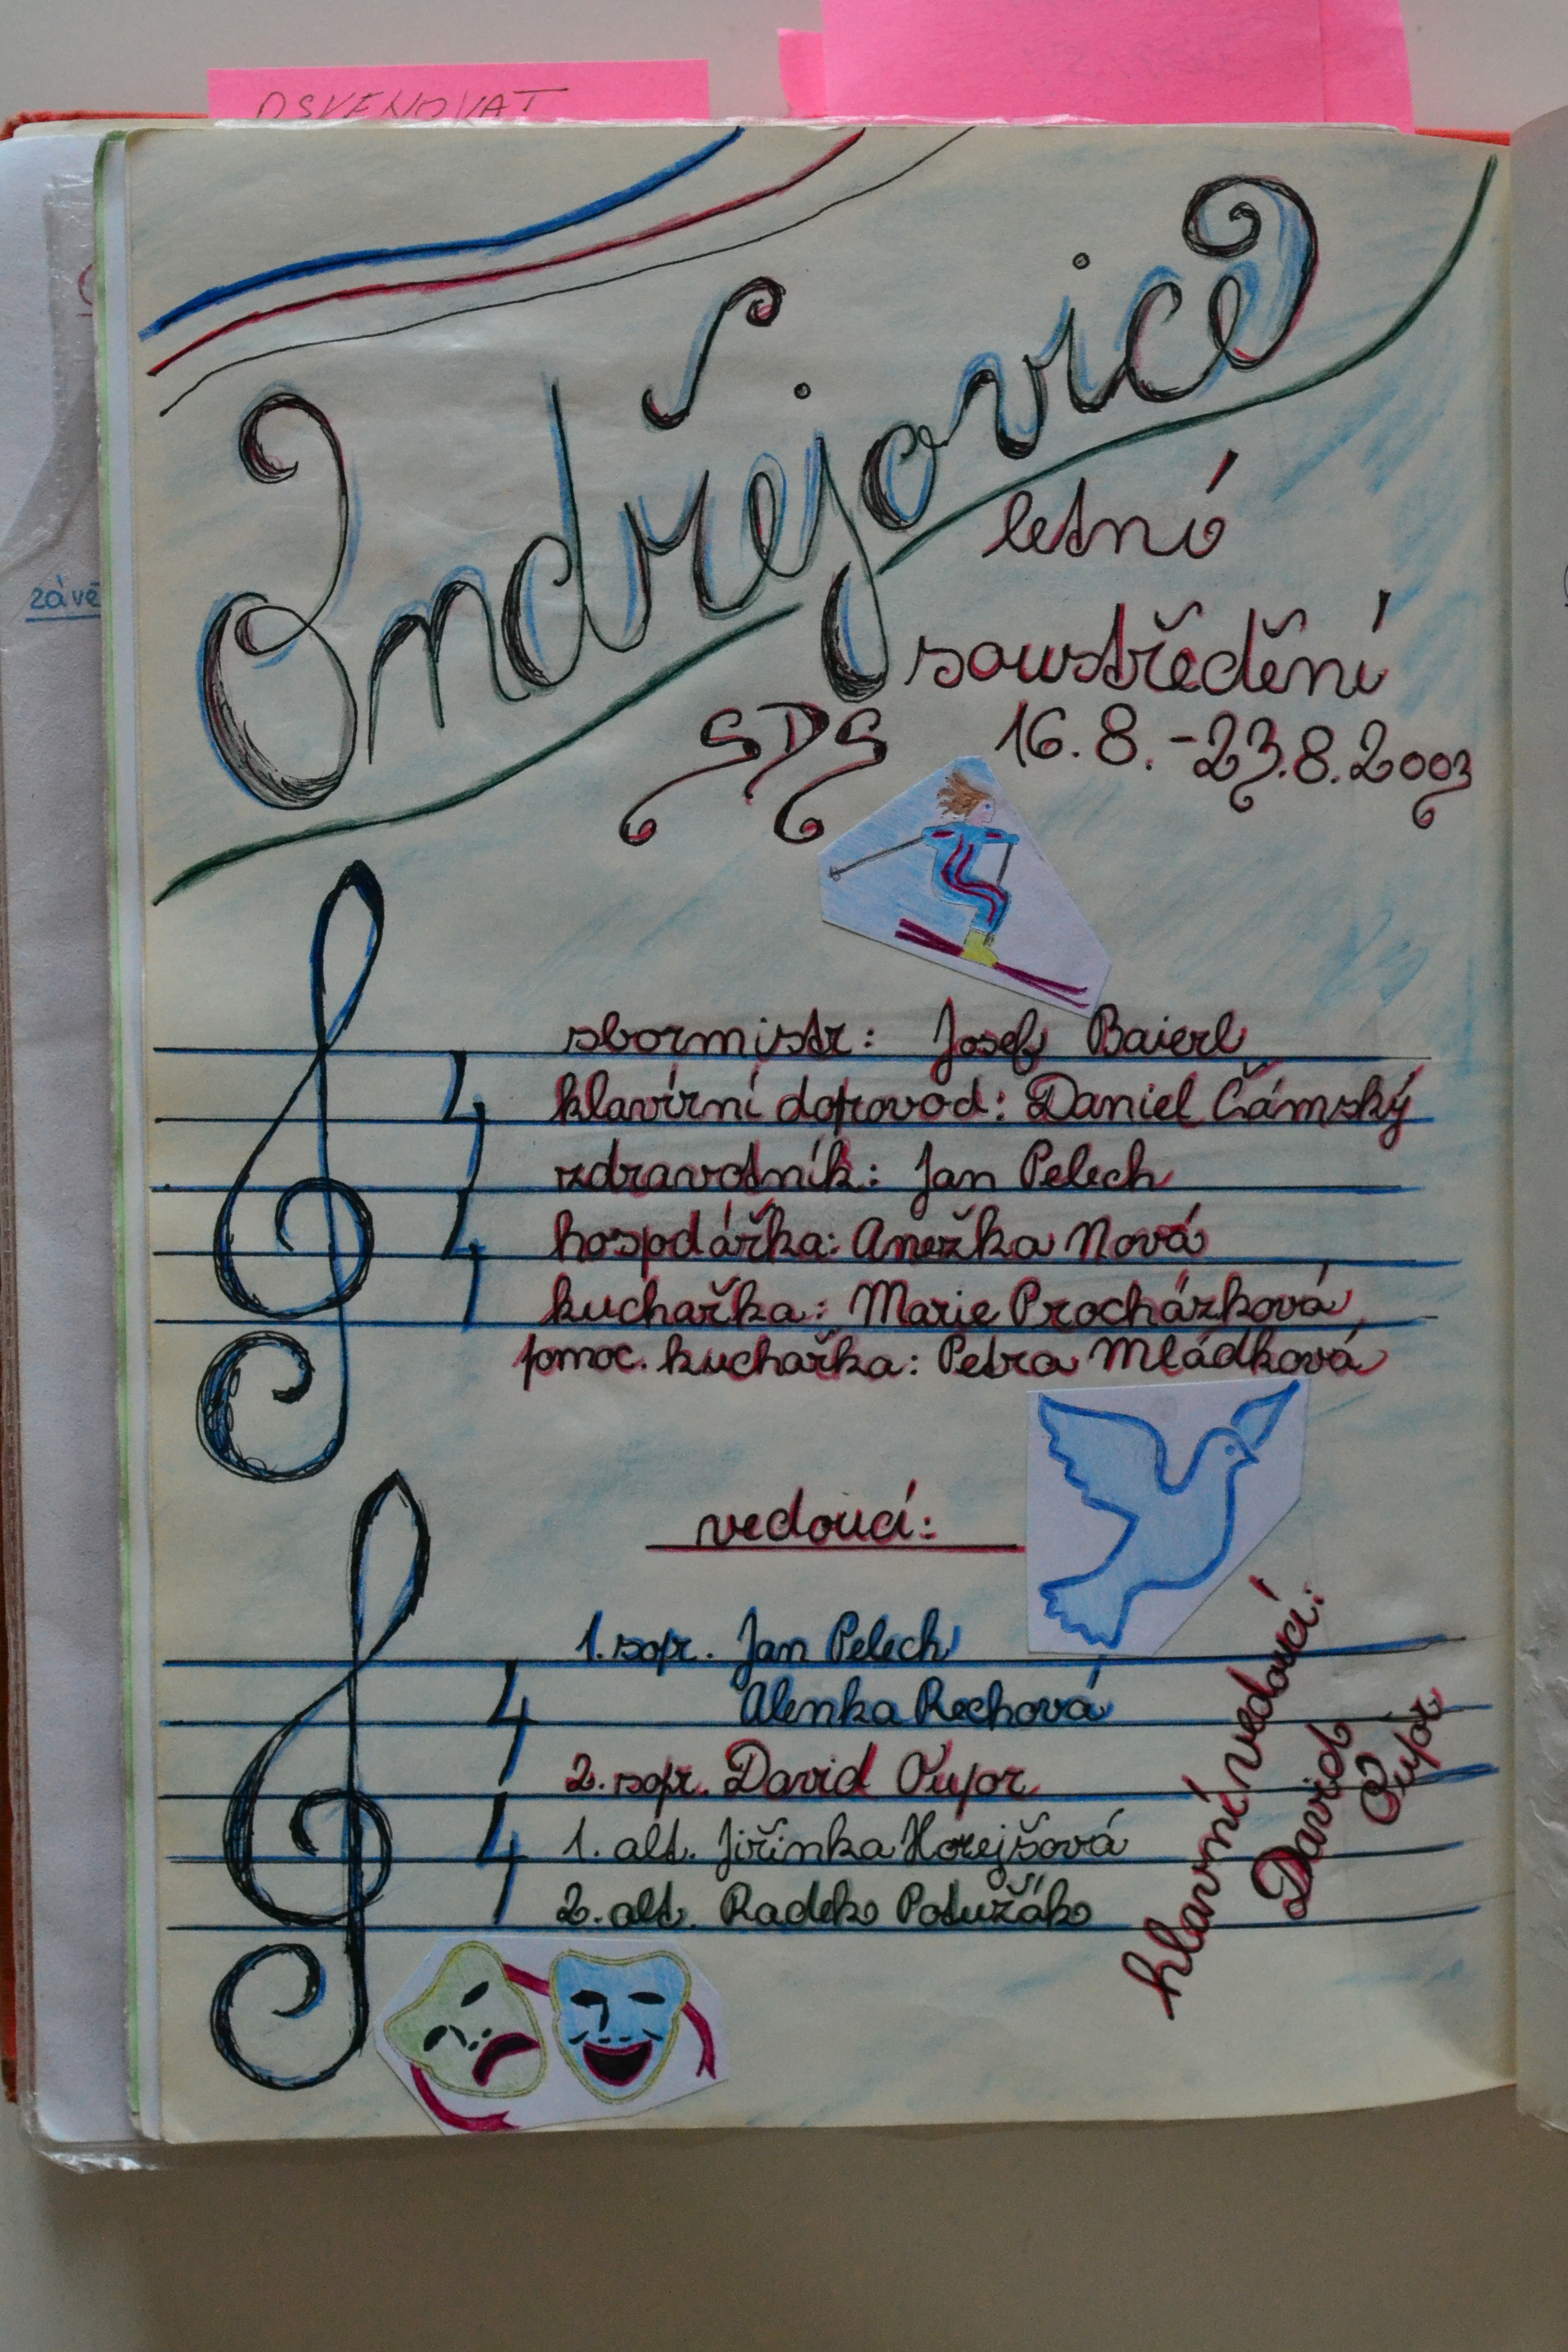 OSVĚNOVAT
závě
Ondřejovice
letní
soustředění
SDS 16.8.-23.8.2003
sbormistr: Josef Baierl
klavírní doprovod: Daniel Čámský
zdravotník: Jan Pelech
hospdářka: Anežka Nová
kuchařka: Marie Procházková
pomoc. kuchařka: Petra Mládková
4
4
vedoucí:
1. sopr. Jan Pelech
Alenka Rechová
2. sopr. David Oupor
1. alt. Jiřinka Horejšová
2. alt. Radek Potužák
4
4
hlavní vedoucí:
David
Oupor